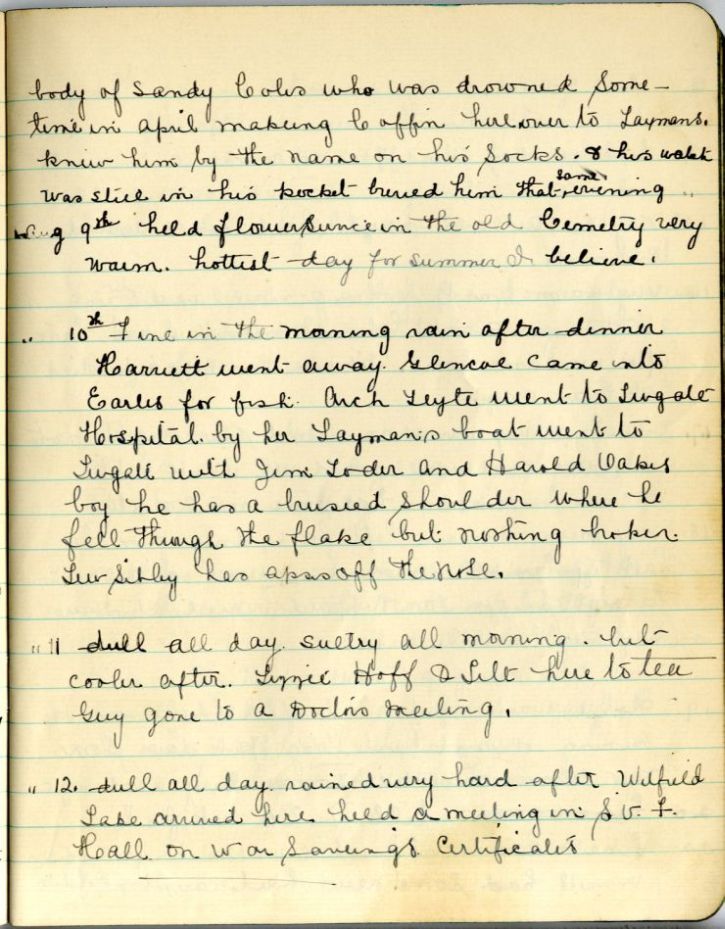 body of Sandy Coles who was drowned some-
time in april makeing Coffin here over to Laymans.
knew him by the name on his Socks. & his watch
was still in his pocket buried him that same evening
Aug 9th held flower sunce in the old Cemetry very
warm. hottest day for summer I believe.
" 10th Fine in the morning rain after dinner
Harriett went away. Glencoe came into
Earles for fish. Arch Leyte went to Twgate
Hospital. by her Layman's boat went to
Twgate with Jim Loder and Harold Oakes
boy he has a brusied shoulder where he
fell through the flake but nothing broken.
Lew Sibley has off the nose.
" 11 dull all day. sultry all morning. but
cooler after. Lizzie Hoff & Lilt here to tea
Guy gone to a Doctors meeting.
" 12. dull all day rained very hard after Wilfield
Lake arrived here held a meeting in S. U. F.
Hall on War Saveings Certificates